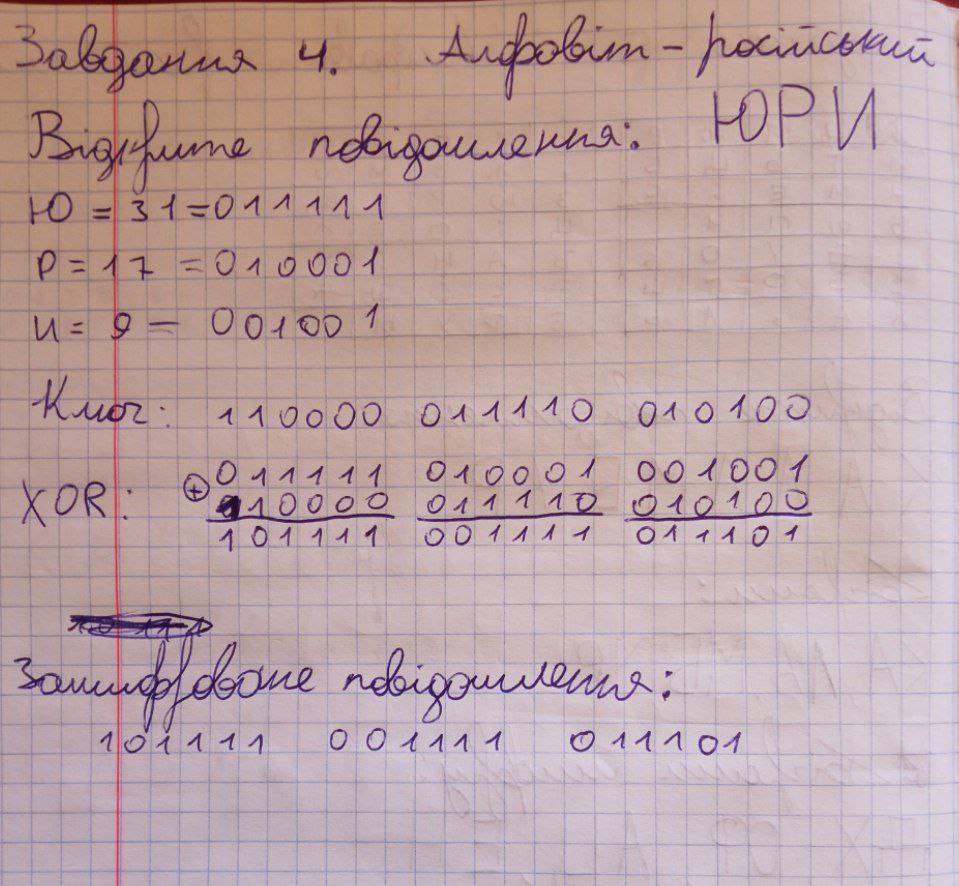 Завдання 4. Алфовіт - російський
Відкрите повідомлення: ЮРИ
Ю = 31 = 011111
Р = 17 = 010001
И = 9 = 001001
Ключ: 110000 011110 010100
XOR: ⊕ 011111 010001 001001
110000 011110 010100
101111 001111 011101
Зашифроване повідомлення:
101111 001111 011101